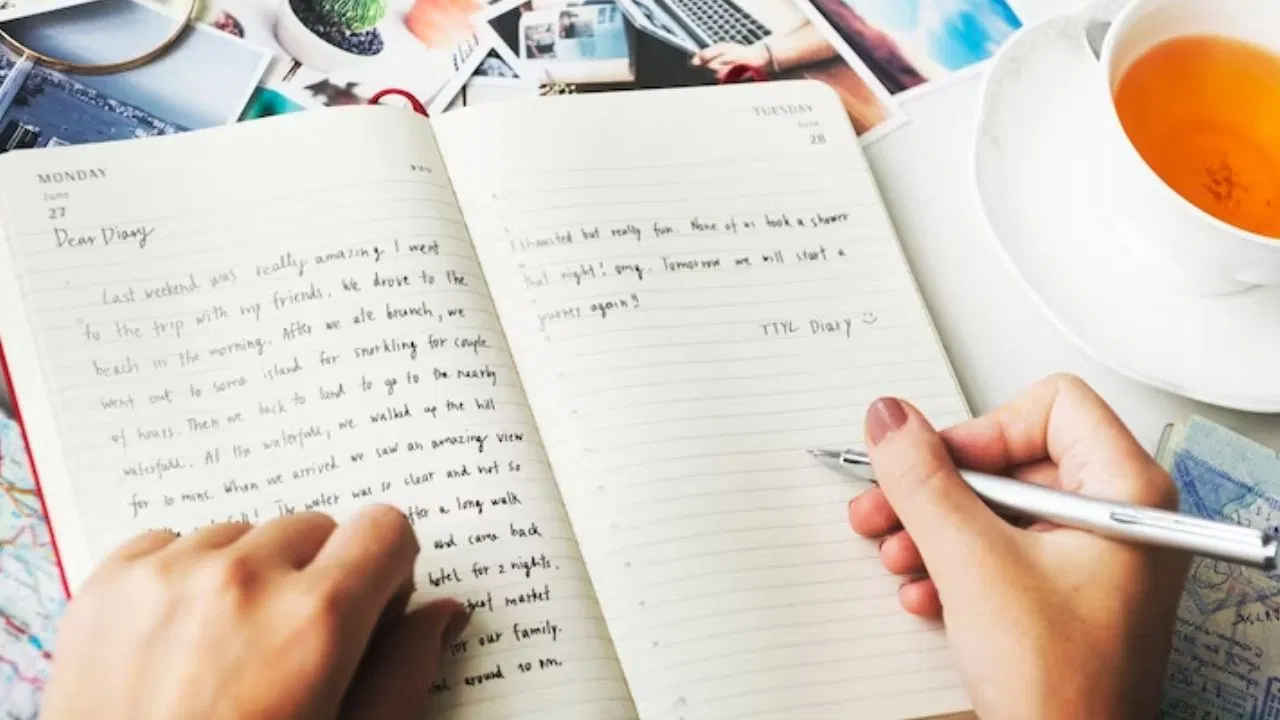 MONDAY
June
27
Dear Diary
Last weekend was really amazing I went
to the trip with my friends. We drove to the
beach in the morning. After we ate brunch, we
went out to some island for snorkling for couple
of hours. Then we back to land to go to the nearby
waterfall. At the waterfall, we walked up the hill
for 20 mins. When we arrived we saw an amazing view
The water was so clear and not so
after a long walk
and came back
hotel for 2 nights.
market
for our family.
around 10 pm.
TUESDAY
June
28
Exhausted but really fun. None of us took a shower
that night! omg. Tomorrow we will start a
journey again!!
TTYL Diary